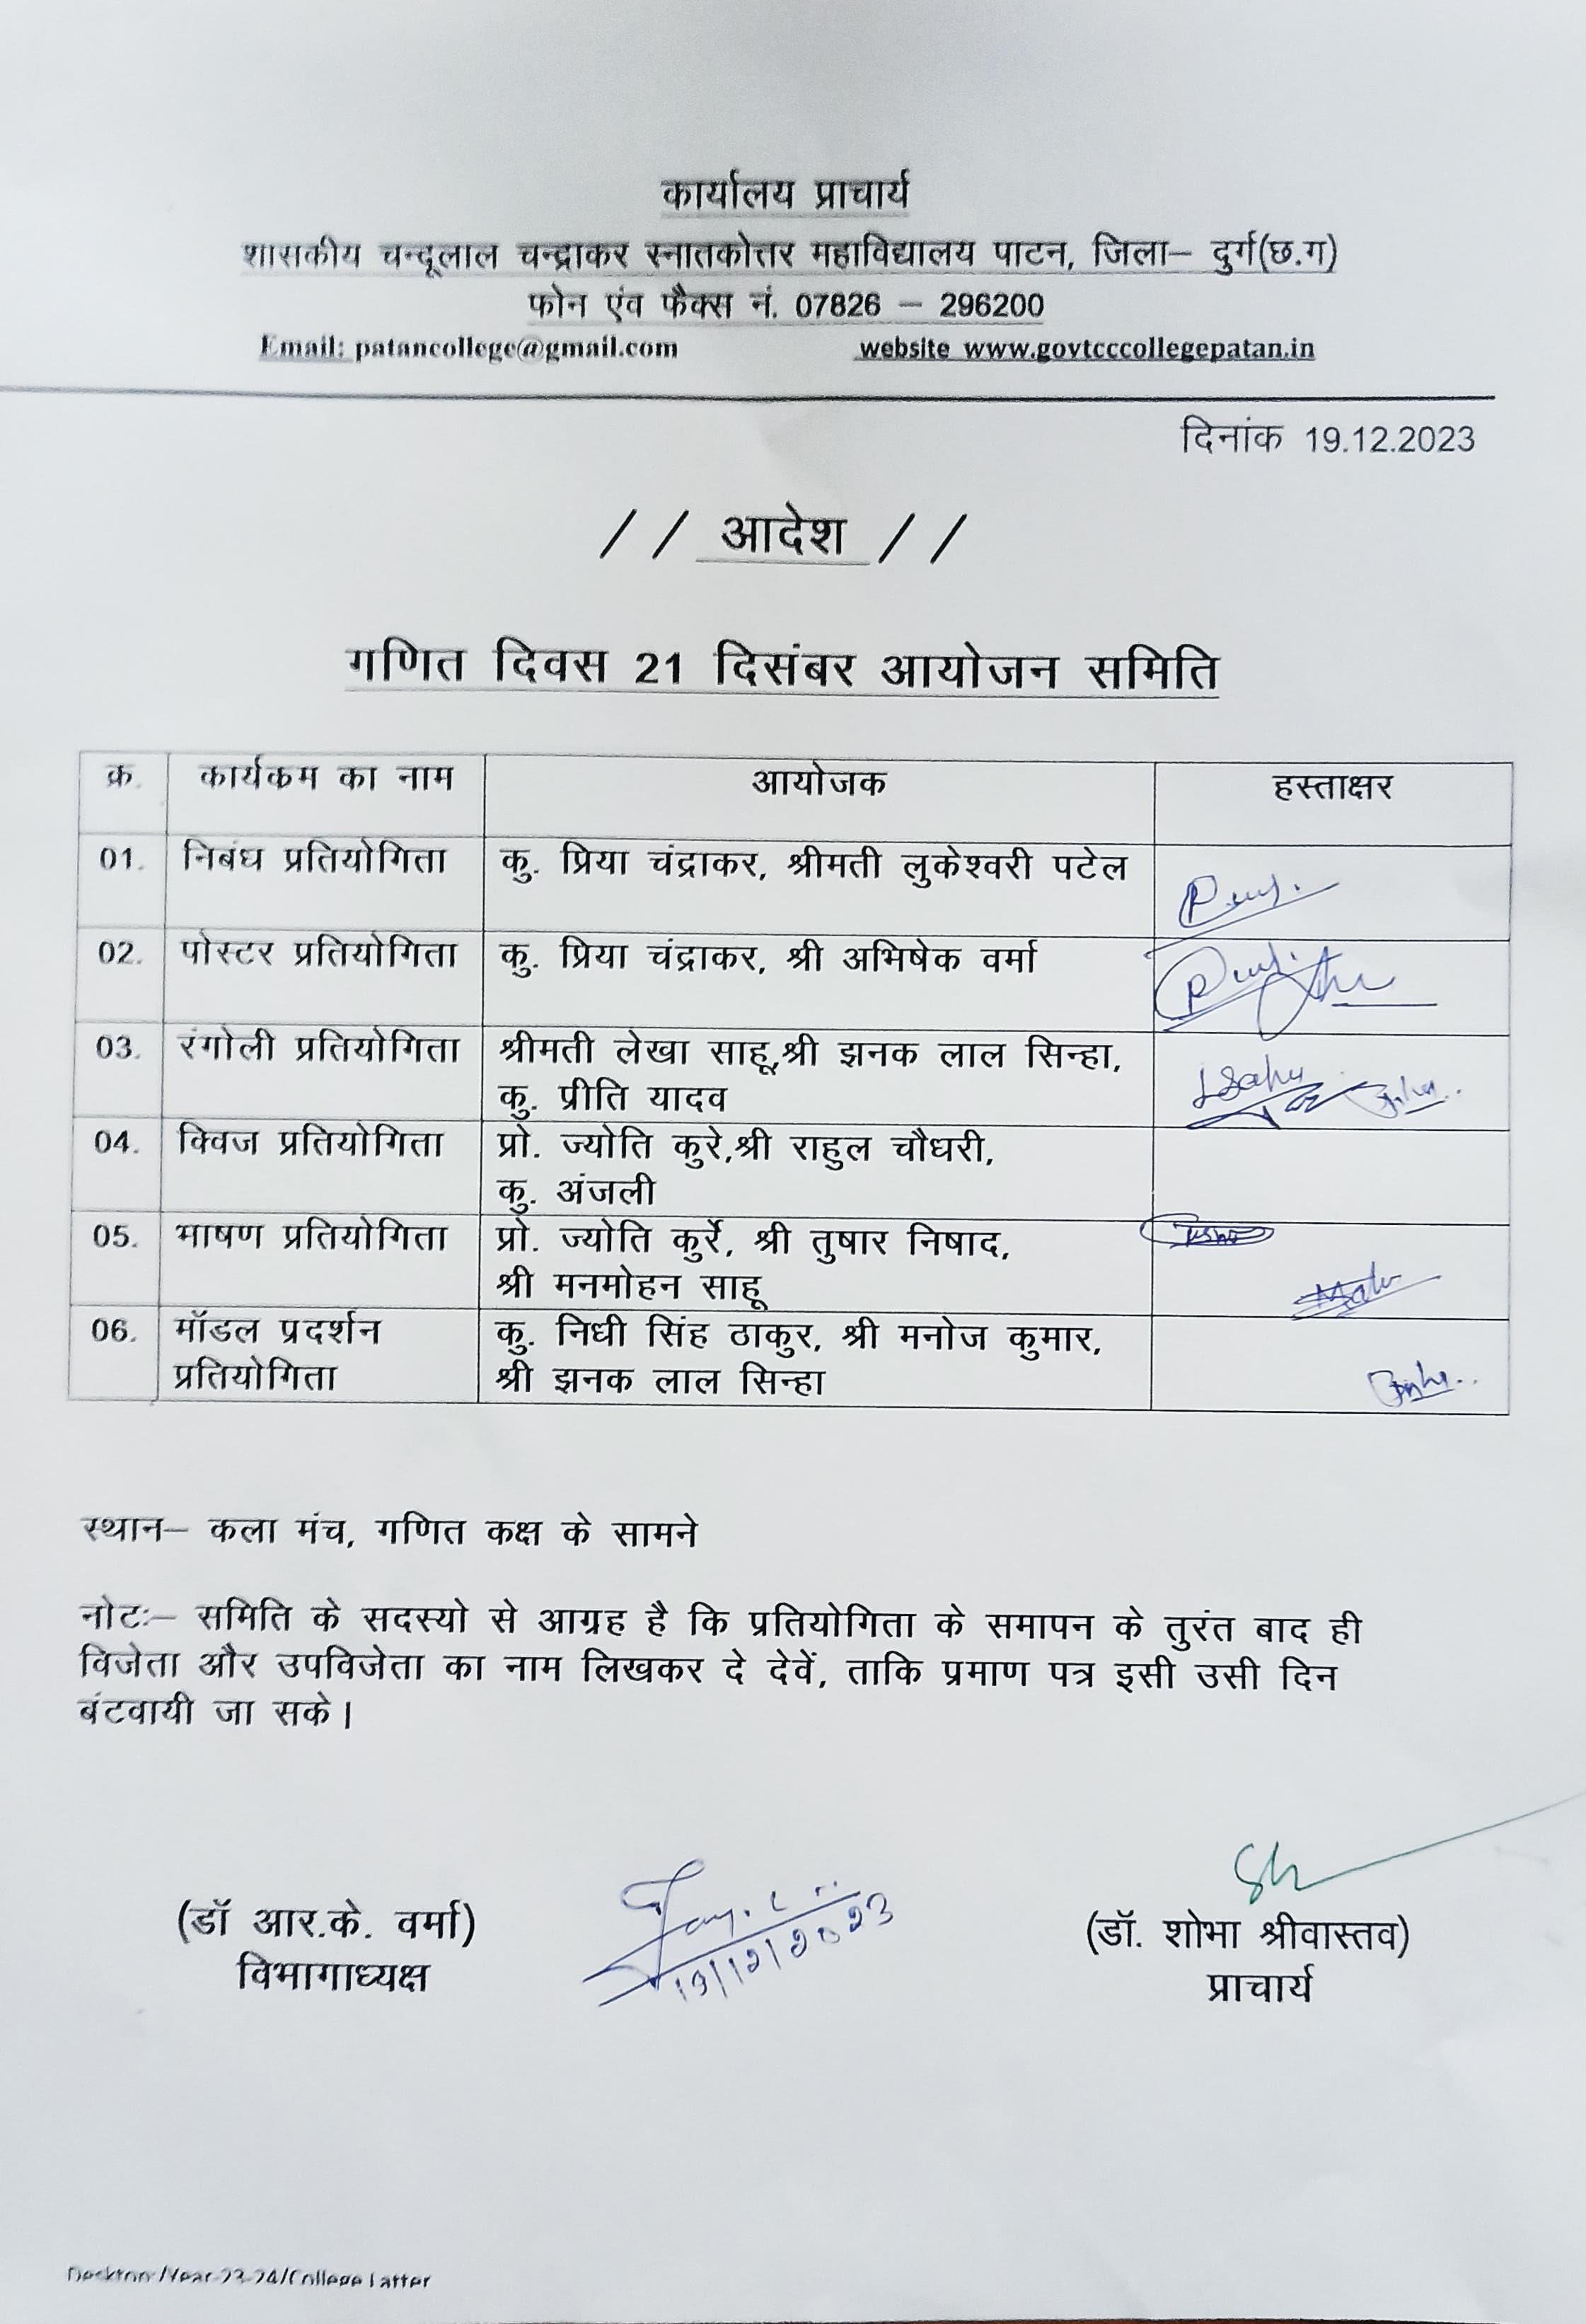 कार्यालय प्राचार्य
शासकीय चन्दूलाल चन्द्राकर स्नातकोत्तर महाविद्यालय पाटन, जिला– दुर्ग(छ.ग)
फोन एंव फैक्स नं. 07826 – 296200
Email: patancollege@gmail.com website www.govtcccollegepatan.in
दिनांक 19.12.2023
// आदेश //
गणित दिवस 21 दिसंबर आयोजन समिति
क्र. कार्यकम का नाम आयोजक हस्ताक्षर
01. निबंध प्रतियोगिता कु. प्रिया चंद्राकर, श्रीमती लुकेश्वरी पटेल
02. पोस्टर प्रतियोगिता कु. प्रिया चंद्राकर, श्री अभिषेक वर्मा
03. रंगोली प्रतियोगिता श्रीमती लेखा साहू,श्री झनक लाल सिन्हा,
कु. प्रीति यादव
04. क्विज प्रतियोगिता प्रो. ज्योति कुरे,श्री राहुल चौधरी,
कु. अंजली
05. भाषण प्रतियोगिता प्रो. ज्योति कुर्रे, श्री तुषार निषाद,
श्री मनमोहन साहू
06. मॉडल प्रदर्शन कु. निधी सिंह ठाकुर, श्री मनोज कुमार,
प्रतियोगिता श्री झनक लाल सिन्हा
स्थान– कला मंच, गणित कक्ष के सामने
नोटः– समिति के सदस्यो से आग्रह है कि प्रतियोगिता के समापन के तुरंत बाद ही
विजेता और उपविजेता का नाम लिखकर दे देवें, ताकि प्रमाण पत्र इसी उसी दिन
बंटवायी जा सके।
19/12/2023
(डॉ आर.के. वर्मा) (डॉ. शोभा श्रीवास्तव)
विभागाध्यक्ष प्राचार्य
Desktop/Year 23-24/College Latter